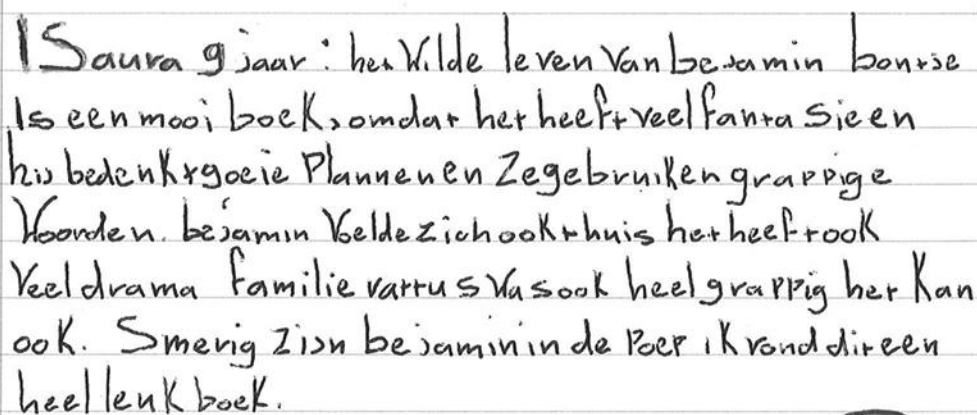 Isaura 9 jaar: het Wilde leven van bejamin bontje
Is een mooi boek, omdat het heeft veel fantasie en
hij bedenkt goeie Plannen en Ze gebruiken grappige
Woorden. bejamin Voelde zich ook thuis het heeft ook
Veel drama familie vartus Was ook heel grappig het Kan
ook. Smerig Zijn bejamin in de Poep ik vond dit een
heel leuk boek.